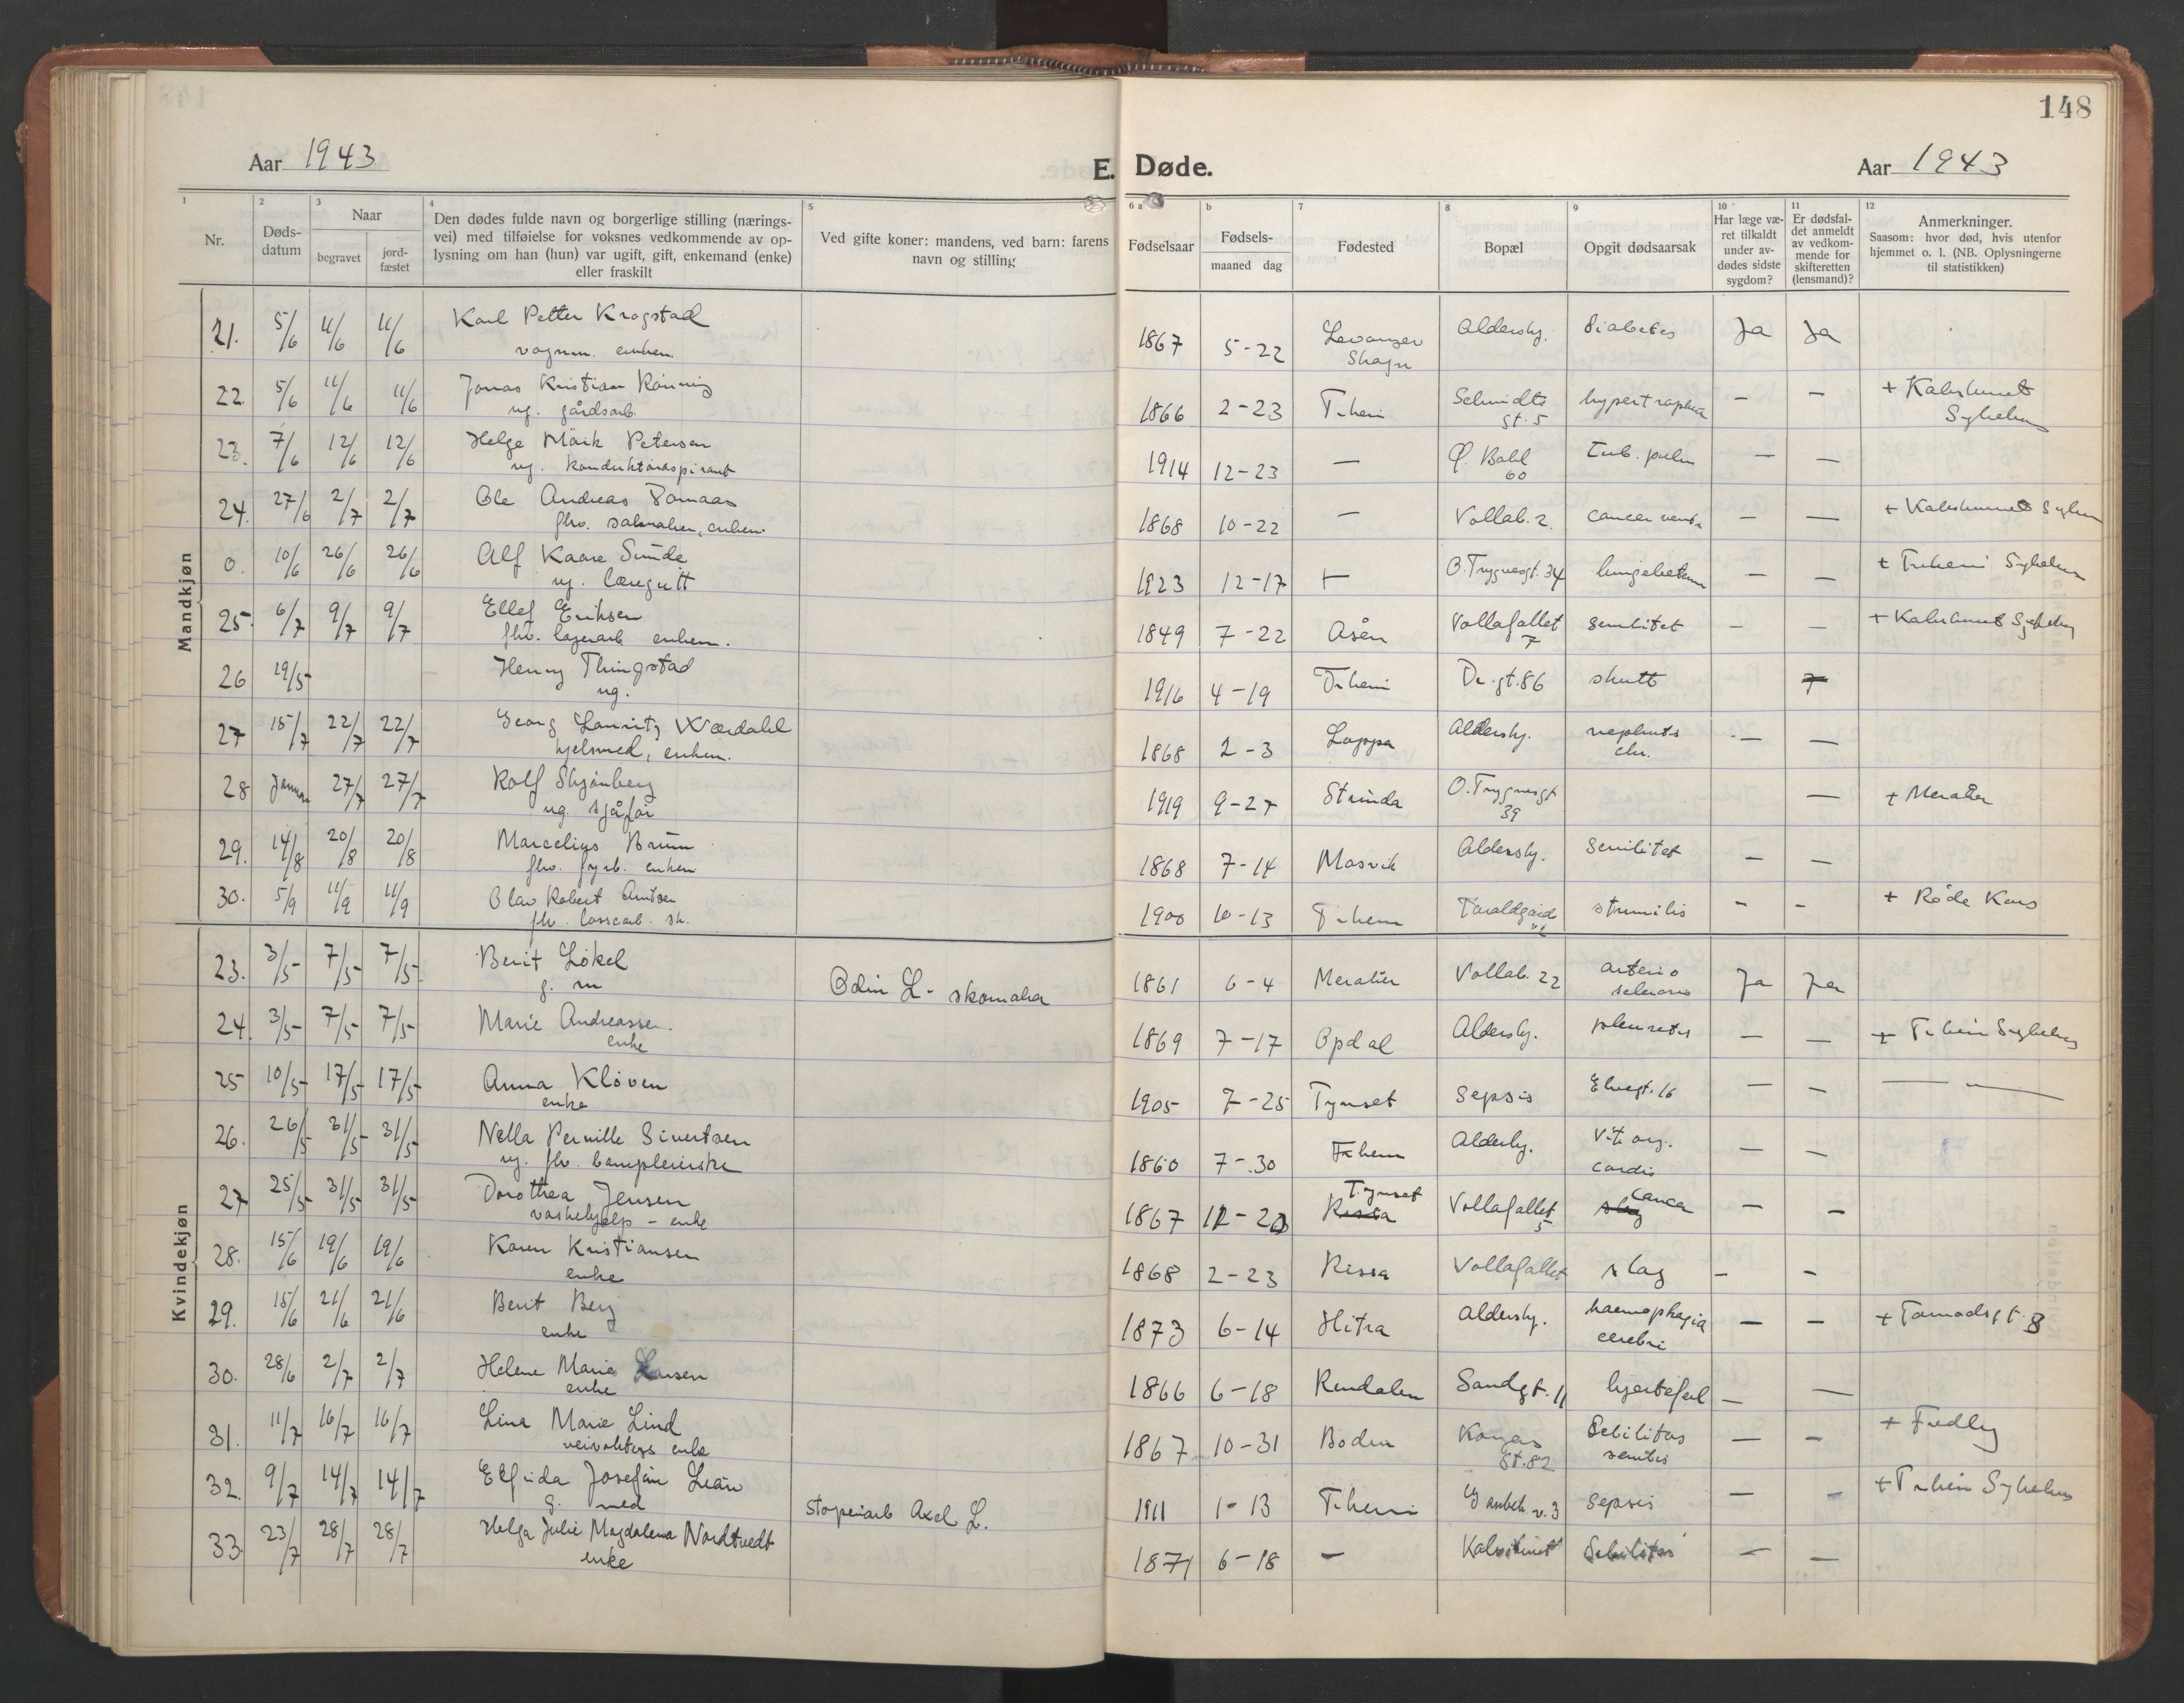 148
Aar 1943 E. Døde. Aar 1943
1 Nr.
2 Døds-datum
3 Naar begravet jord-fæstet
4 Den dødes fulde navn og borgerlige stilling (nærings-
vei) med tilføielse for voksnes vedkommende av op-
lysning om han (hun) var ugift, gift, enkemand (enke)
eller fraskilt
5 Ved gifte koner: mandens, ved barn: farens
navn og stilling
6 a Fødselsaar
b Fødsels- maaned dag
7 Fødested
8 Bopæl
9 Opgit dødsaarsak
10 Har læge væ-
ret tilkaldt
under av-
dødes sidste
sygdom?
11 Er dødsfal-
det anmeldt
av vedkom-
mende for
skifteretten
(lensmand)?
12 Anmerkninger.
Saasom: hvor død, hvis utenfor
hjemmet o. l. (NB. Oplysningerne
til statistikken)
Mandkjøn
21. 5/6 11/6 11/6 Karl Petter Kragstad 1867 5-22 Levanger Aldershj. diabetes Ja Ja
vognm. enkem. Skogn
22. 5/6 11/6 11/6 Jonas Kristian Rönning 1866 2-23 T.heim Schmidts — —
ug. gårdsarb. gt. 5
23. 7/6 12/6 12/6 Helge Mörk Petersen 1914 12-23 — Ø. Bakl 60 Tub. pulm — —
ug. konduktöraspirant
24. 27/6 2/7 2/7 Ole Andreas 1868 10-22 — Vollab. 2. cancer ventr — —
fhv. salmaker, enkem.
0. 10/6 26/6 26/6 Alf Kaare Sunde 1923 12-17 O. Trygvesgt. 34 — — + Tr.heim Sykehus
ug. læregutt
25. 6/7 9/7 9/7 Ellef Eriksen 1849 7-22 Åsen Vollafallet 7 senilitet — —
fhv. lagerarb enkem.
26 19/5 Henry Thingstad 1916 4-19 Tr.heim Dr. gt. 86 skutt
ug.
27 15/7 22/7 22/7 Georg Lauritz Wærdahl 1868 2-3 Loppa Aldershj. nephritis chr. — —
hjelsmed, enkem.
28 Januar 27/7 27/7 Rolf Skjönberg 1919 9-27 Strinda O. Trygvesgt 39 — + Meråker
ug. sjåför
29. 14/8 20/8 20/8 Marcelius Bruun 1868 7-14 Masvik Aldershj. Senilitet — —
fhv. fyrb. enkem
30. 5/9 11/9 11/9 Olav Robert Arntsen 1900 10-13 Tr.heim — — + Röde Kors
fhv. lossearb.
Kvindekjøn
23. 3/5 7/5 7/5 Berit Lökel Odin L - skomaker 1861 6-4 Meråker Vollab. 22 arterio Ja Ja
g. m sclerosis
24. 3/5 7/5 7/5 Marie Andreassen. 1869 7-17 Opdal Aldershj. — — + Tr.heim Sykehus
enke
25 10/5 17/5 17/5 Anna Klöven 1905 7-25 Tynset Sepsis Elvegt. 16 — — — —
enke
26. 26/5 31/5 31/5 Nella Pernille Sivertsen 1860 7-30 Tr.heim Aldershj. Vit. org. cordis — —
ug. fhv.
27 25/5 31/5 31/5 Dorothea Jensen 1867 Tynset Rissa Vollafallet 5 slag cancer — —
vaskehjelp - enke
28. 15/6 19/6 19/6 Karen Kristiansen 1868 2-23 Rissa Vollafallet slag — —
enke
29. 15/6 21/6 21/6 Berit Berg 1873 6-14 Hitra Aldershj. haemophagia — —
enke cerebri
30. 28/6 2/7 2/7 Helene Marie Larsen 1866 6-18 Rendalen Sandgt. 11 hjertefeil — —
enke
31. 11/7 16/7 16/7 Lina Marie Lind 1867 10-31 Bodin Kongens gt. 82 Debilitas senilis — —
veivokters enke
32. 9/7 14/7 14/7 Elfrida Josefine stoperiarb Axel L. 1911 1-13 Tr.heim sepsis — — + Tr.heim Sykehus
g. med
33. 23/7 28/7 28/7 Helga Julie Magdalena Nordtvedt 1871 6-18 — Kalvskinnet Debilitas — —
enke